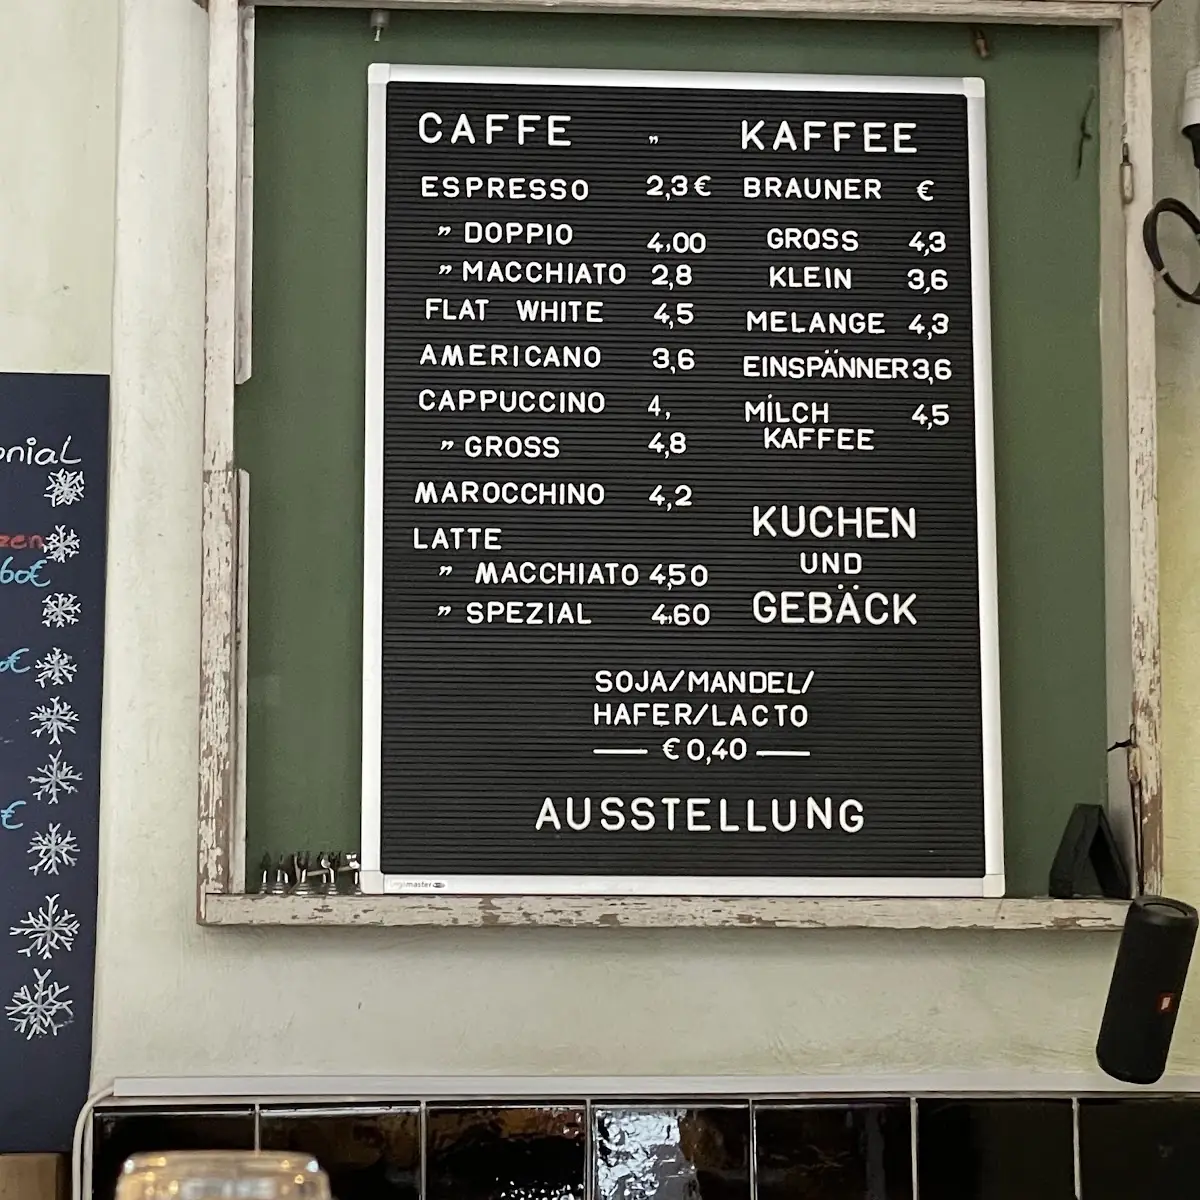 CAFFE „ KAFFEE
ESPRESSO 2,3€
„ DOPPIO 4,00
„ MACCHIATO 2,8
FLAT WHITE 4,5
AMERICANO 3,6
CAPPUCCINO 4,
„ GROSS 4,8
MAROCCHINO 4,2
LATTE
„ MACCHIATO 4,50
„ SPEZIAL 4,60
BRAUNER €
GROSS 4,3
KLEIN 3,6
MELANGE 4,3
EINSPÄNNER 3,6
MILCH 4,5
KAFFEE
KUCHEN
UND
GEBÄCK
SOJA/MANDEL/
HAFER/LACTO
— € 0,40 —
AUSSTELLUNG